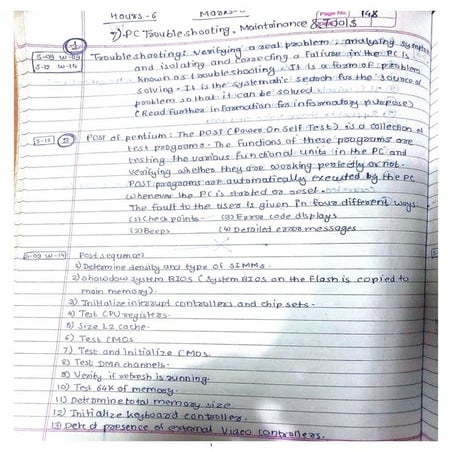 Page No. 148
HOURS-6 MARKS-
7) - PC Troubleshooting, Maintainance & Tools
S-09 W-09
S-12 W-14
1 Troubleshooting: Verifying a real problem, analysing symptoms
and isolating and correcting a failure in the PC is
known as troubleshooting. It is a form of problem
solving. It is the systematic search for the source of
problem so that it can be solved
(Read further information for informatory purpose)
S-15 2 POST of pentium: The POST (Power On Self Test) is a collection of
test programs. The functions of these programs are
testing the various functional units in the PC and
Verifying whether they are working perfectly or not.
POST programs are automatically executed by the PC
whenever the PC is started or reset.
The fault to the user is given in four different ways:
(1) Check points (3) Error code displays
(2) Beeps (4) Detailed error messages
S-09 W-14 Post sequence:
1) Determine density and type of SIMMs.
2) Showdow system BIOS (System BIOS on the Flash is copied to
main memory).
3) Initialize interrupt controllers and chip sets.
4) Test CPU registers.
5) Size L2 cache.
6) Test CMOS
7) Test and initialize CMOS.
8) Test DMA channels.
9) Verify if refresh is running.
10) Test 64K of memory.
11) Determine total memory size.
12) Initialize keyboard controller.
13) Detect presence of external Video controllers.